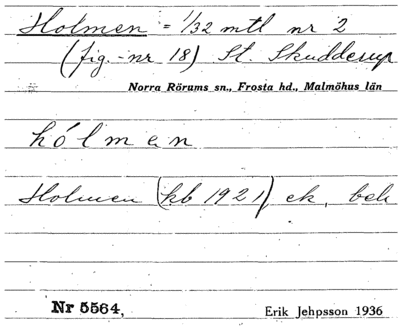 Holmen = 1/32 mtl nr 2
(fig.-nr 18) St. Skudderup
Norra Rörums sn., Frosta hd., Malmöhus län
hólmen
Holmen (kb 1921), ek, beb
Nr 5564,
Erik Jehpsson 1936